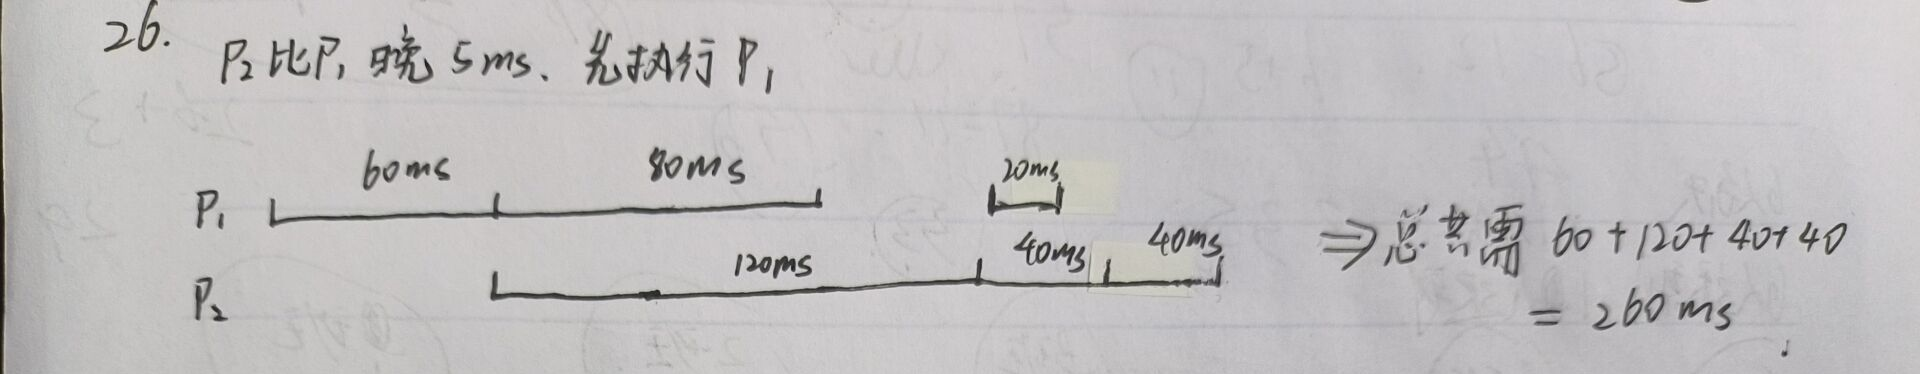 26.
P₂比P₁晚5ms、先执行P₁
60ms 80ms 20ms
P₁
120ms 40ms 40ms
P₂
⇒总共需 60+120+40+40
= 260ms